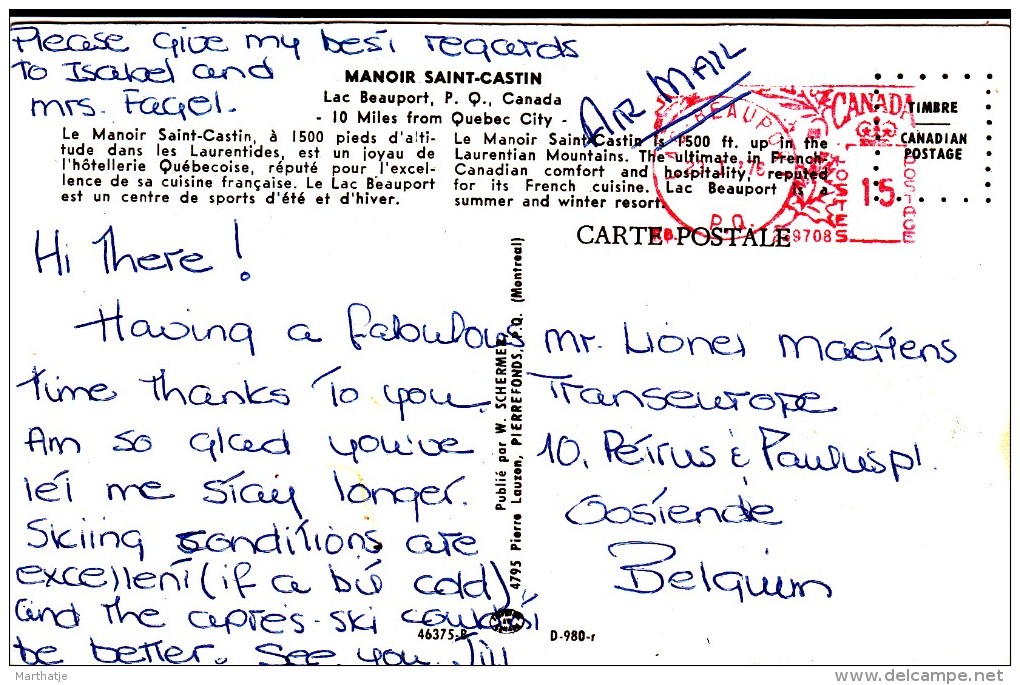 Please give my best regards
to Isabel and
mrs. Fagel.
MANOIR SAINT-CASTIN
Lac Beauport, P. Q., Canada
- 10 Miles from Quebec City -
Le Manoir Saint-Castin, à 1500 pieds d'alti-
tude dans les Laurentides, est un joyau de
l'hôtellerie Québecoise, réputé pour l'excel-
lence de sa cuisine française. Le Lac Beauport
est un centre de sports d'été et d'hiver.
Le Manoir Saint-Castin is 1500 ft. up in the
Laurentian Mountains. The ultimate in French-
Canadian comfort and hospitality, reputed
for its French cuisine. Lac Beauport is a
summer and winter resort.
AIR MAIL
BEAUPORT
P.Q.
CANADA
POSTES
15
POSTAGE
TIMBRE
CANADIAN
POSTAGE
CARTE POSTALE
Hi there!
Having a fabulous
time thanks to you.
Am so glad you've
let me stay longer.
Skiing conditions are
excellent (if a bit cold),
and the après-ski couldn't
be better. See you Jill
Publié par W. SCHERMER,
4795 Pierre Lauzon, PIERREFONDS, P.Q. (Montreal)
mr. Lionel Maertens
Transeurope
10, Petrus & Pauluspl.
Oostende
Belgium
46375-B
D-980-r
Marthatje
delcampe.net